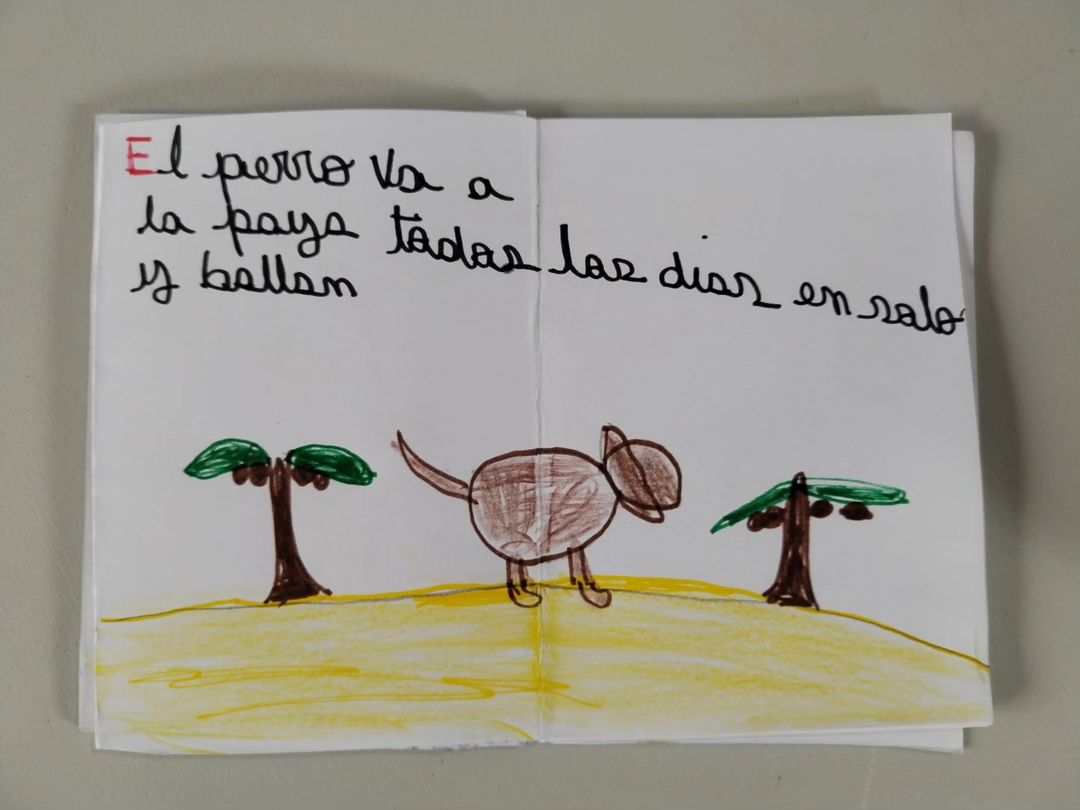 El perro va a
la paya todos los dias en solo
y ballan